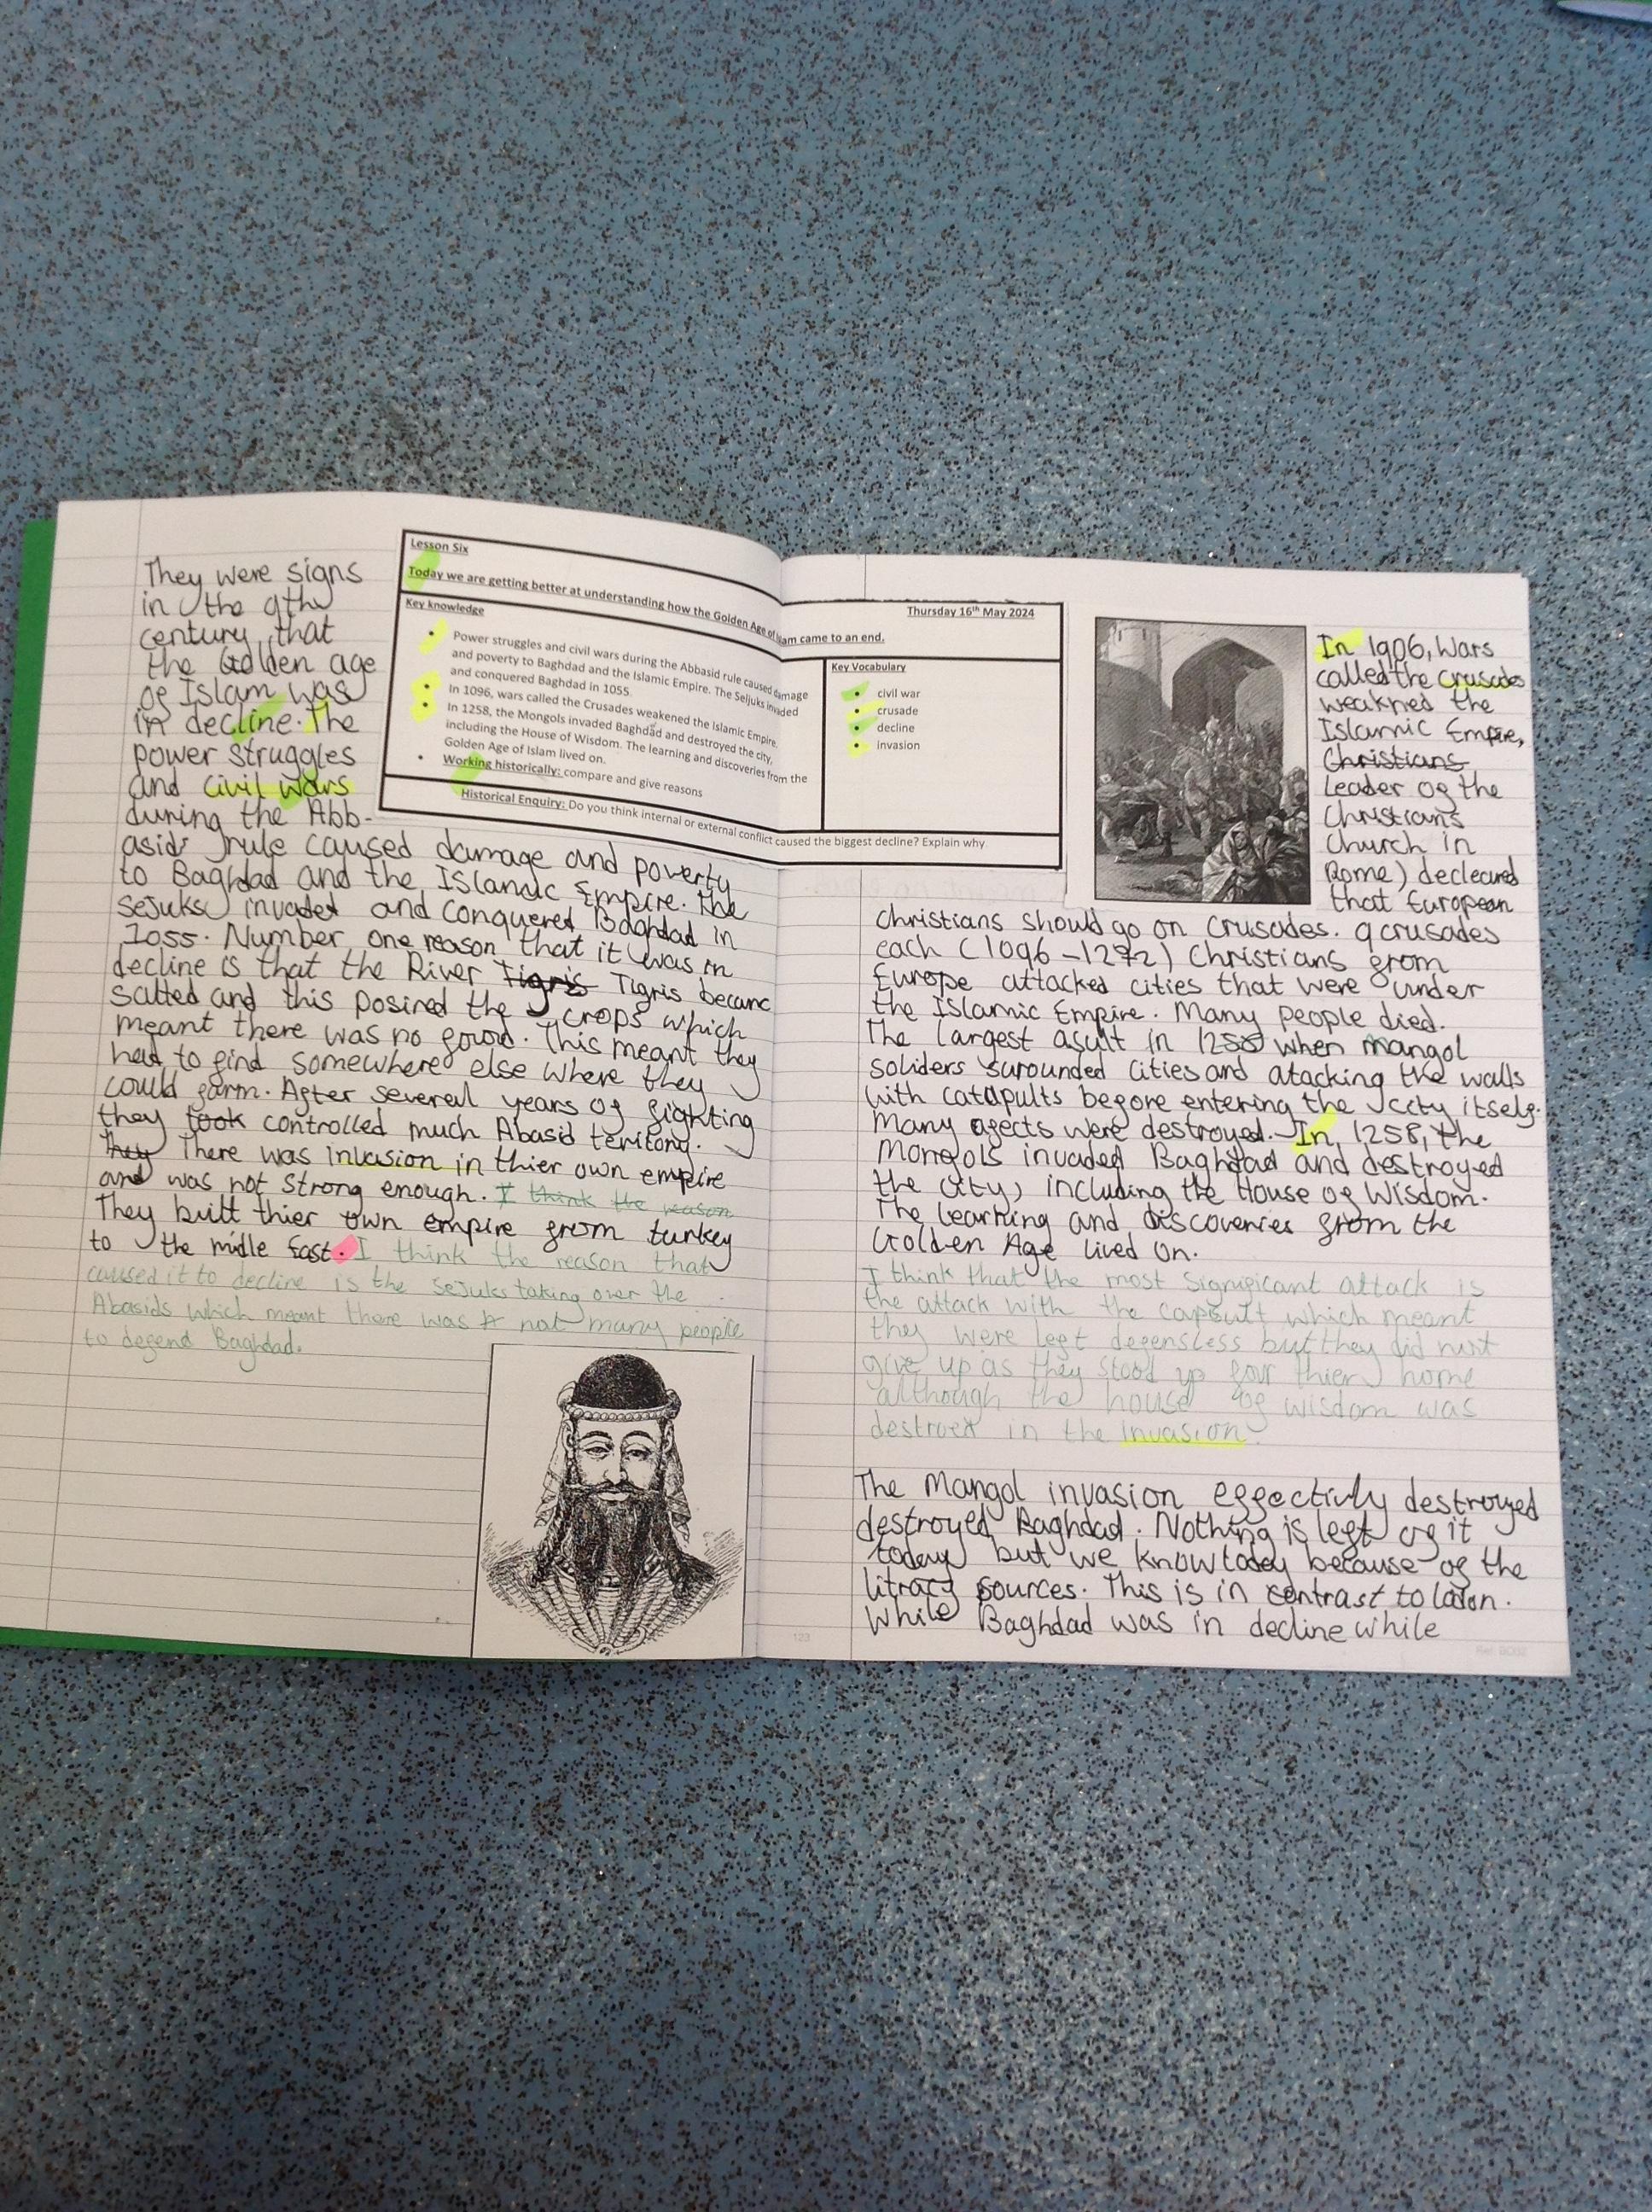 Lesson Six
Thursday 16th May 2024
Today we are getting better at understanding how the Golden Age of Islam came to an end.
Key knowledge
• Power struggles and civil wars during the Abbasid rule caused damage
and poverty to Baghdad and the Islamic Empire. The Seljuks invaded
and conquered Baghdad in 1055.
• In 1096, wars called the Crusades weakened the Islamic Empire.
• In 1258, the Mongols invaded Baghdad and destroyed the city,
including the House of Wisdom. The learning and discoveries from the
Golden Age of Islam lived on.
• Working historically: compare and give reasons
Key Vocabulary
• civil war
• crusade
• decline
• invasion
Historical Enquiry: Do you think internal or external conflict caused the biggest decline? Explain why
They were signs
in the 9th
century that
the Golden age
of Islam was
in decline. The
power struggles
and civil wars
during the Abb-
asid rule caused damage and poverty
to Baghdad and the Islamic Empire. The
Sejuks invaded and conquered Baghdad in
1055. Number one reason that it was in
decline is that the River Tigris Tigris became
salted and this posined the crops which
meant there was no food. This meant they
had to find somewhere else where they
could farm. After several years of fighting
they took controlled much Abasid
They There was invasion in thier own empire
and was not strong enough. I think the reason
They built thier own empire from turkey
to the midle East. I think the reason that
caused it to decline is the Sejuks taking over the
Abasids which meant there was not many people
to defend Baghdad.
In 1906, Wars
called the crusades
weakned the
Islamic Empire,
Christians
Leader of the
Christians
Church in
Rome) decleared
that European
christians should go on Crusades. 9 crusades
each (1096-1272) Christians from
Europe attacked cities that were under
the Islamic Empire. Many people died.
The largest asult in 1258 when mangol
soliders surounded cities and atacking the walls
with catapults before entering the city itself.
Many were destroyed. In, 1258, the
Mongols invaded Baghdad and destroyed
the city, including the House of Wisdom.
The learning and discoveries from the
Golden Age lived on.
I think that the most significant attack is
the attack with the which meant
they were left defensless but they did
give up as they stood up thier home
although the house of wisdom was
in the invasion.
The Mangol invasion effectivly destroyed
destroyed Baghdad. Nothing is left of it
today but we know today because of the
litracy sources. This is in contrast to
While Baghdad was in decline while
123